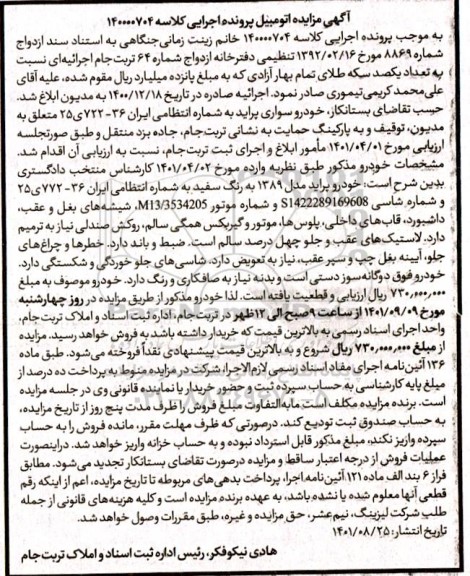 آگهی مزایده اتومبیل پرونده اجرایی کلاسه ۱۴۰۰۰۰۷۰۴
به موجب پرونده اجرایی کلاسه ۱۴۰۰۰۰۷۰۴ خانم زینت زمانی‌جنگاهی به استناد سند ازدواج
شماره ۸۸۶۹ مورخ ۱۳۹۲/۰۲/۱۶ تنظیمی دفترخانه ازدواج شماره ۶۴ تربت‌جام اجرائیه‌ای نسبت
به تعداد یکصد سکه طلای تمام بهار آزادی که به مبلغ پانزده میلیارد ریال مقوم شده، علیه آقای
علی‌محمد کریمی‌تیموری صادر نمود. اجرائیه صادره در تاریخ ۱۴۰۰/۱۲/۱۸ به مدیون ابلاغ شد.
حسب تقاضای بستانکار، خودرو سواری پراید به شماره انتظامی ایران ۳۶-۷۲۲ی۲۵ متعلق به
مدیون، توقیف و به پارکینگ حمایت به نشانی تربت‌جام، جاده یزد منتقل و طبق صورتجلسه
ارزیابی مورخ ۱۴۰۱/۰۴/۰۱ مأمور ابلاغ و اجرای ثبت تربت‌جام، نسبت به ارزیابی آن اقدام شد.
مشخصات خودرو مذکور طبق نظریه وارده مورخ ۱۴۰۱/۰۴/۰۲ کارشناس منتخب دادگستری
بدین شرح است: خودرو پراید مدل ۱۳۸۹ به رنگ سفید به شماره انتظامی ایران ۳۶-۷۷۲ی۲۵
و شماره شاسی S1422289169608 و شماره موتور M13/3534205، شیشه‌های بغل و عقب،
داشبورد، قاب‌های داخلی، پلوس‌ها، موتور و گیربکس همگی سالم، روکش صندلی نیاز به ترمیم
دارد. لاستیک‌های عقب و جلو چهل درصد سالم است. ضبط و باند دارد. خطرها و چراغ‌های
جلو، آیینه بغل چپ و سپر عقب، نیاز به تعویض دارد. شاسی‌های جلو خوردگی و شکستگی دارد.
خودرو فوق دوگانه‌سوز دستی است و بدنه نیاز به صافکاری و رنگ دارد. خودرو موصوف به مبلغ
۷۳۰,۰۰۰,۰۰۰ ریال ارزیابی و قطعیت یافته است. لذا خودرو مذکور از طریق مزایده در روز چهارشنبه
مورخ ۱۴۰۱/۰۹/۰۹ از ساعت ۹ صبح الی ۱۲ ظهر در تربت‌جام، اداره ثبت اسناد و املاک تربت‌جام،
واحد اجرای اسناد رسمی به بالاترین قیمت که خریدار داشته باشد به فروش خواهد رسید. مزایده
از مبلغ ۷۳۰,۰۰۰,۰۰۰ ریال شروع و به بالاترین قیمت پیشنهادی نقداً فروخته می‌شود. طبق ماده
۱۳۶ آئین‌نامه اجرای مفاد اسناد رسمی لازم‌الاجرا، شرکت در مزایده منوط به پرداخت ده درصد از
مبلغ پایه کارشناسی به حساب سپرده ثبت و حضور خریدار یا نماینده قانونی وی در جلسه مزایده
است. برنده مزایده مکلف است مابه‌التفاوت مبلغ فروش را ظرف مدت پنج روز از تاریخ مزایده،
به حساب صندوق ثبت تودیع کند. درصورتی که ظرف مهلت مقرر، مانده فروش را به حساب
سپرده واریز نکند، مبلغ مذکور قابل استرداد نبوده و به حساب خزانه واریز خواهد شد. دراینصورت
عملیات فروش از درجه اعتبار ساقط و مزایده درصورت تقاضای بستانکار تجدید می‌شود. مطابق
فراز ۶ بند الف ماده ۱۲۱ آئین‌نامه اجرا، پرداخت بدهی‌های مربوطه تا تاریخ مزایده، اعم از اینکه رقم
قطعی آنها معلوم شده یا نشده باشد، به عهده برنده مزایده است و کلیه هزینه‌های قانونی از جمله
طلب شرکت لیزینگ، نیم‌عشر، حق مزایده و غیره، طبق مقررات وصول خواهد شد.
تاریخ انتشار: ۱۴۰۱/۰۸/۲۵
هادی نیکوفکر، رئیس اداره ثبت اسناد و املاک تربت‌جام